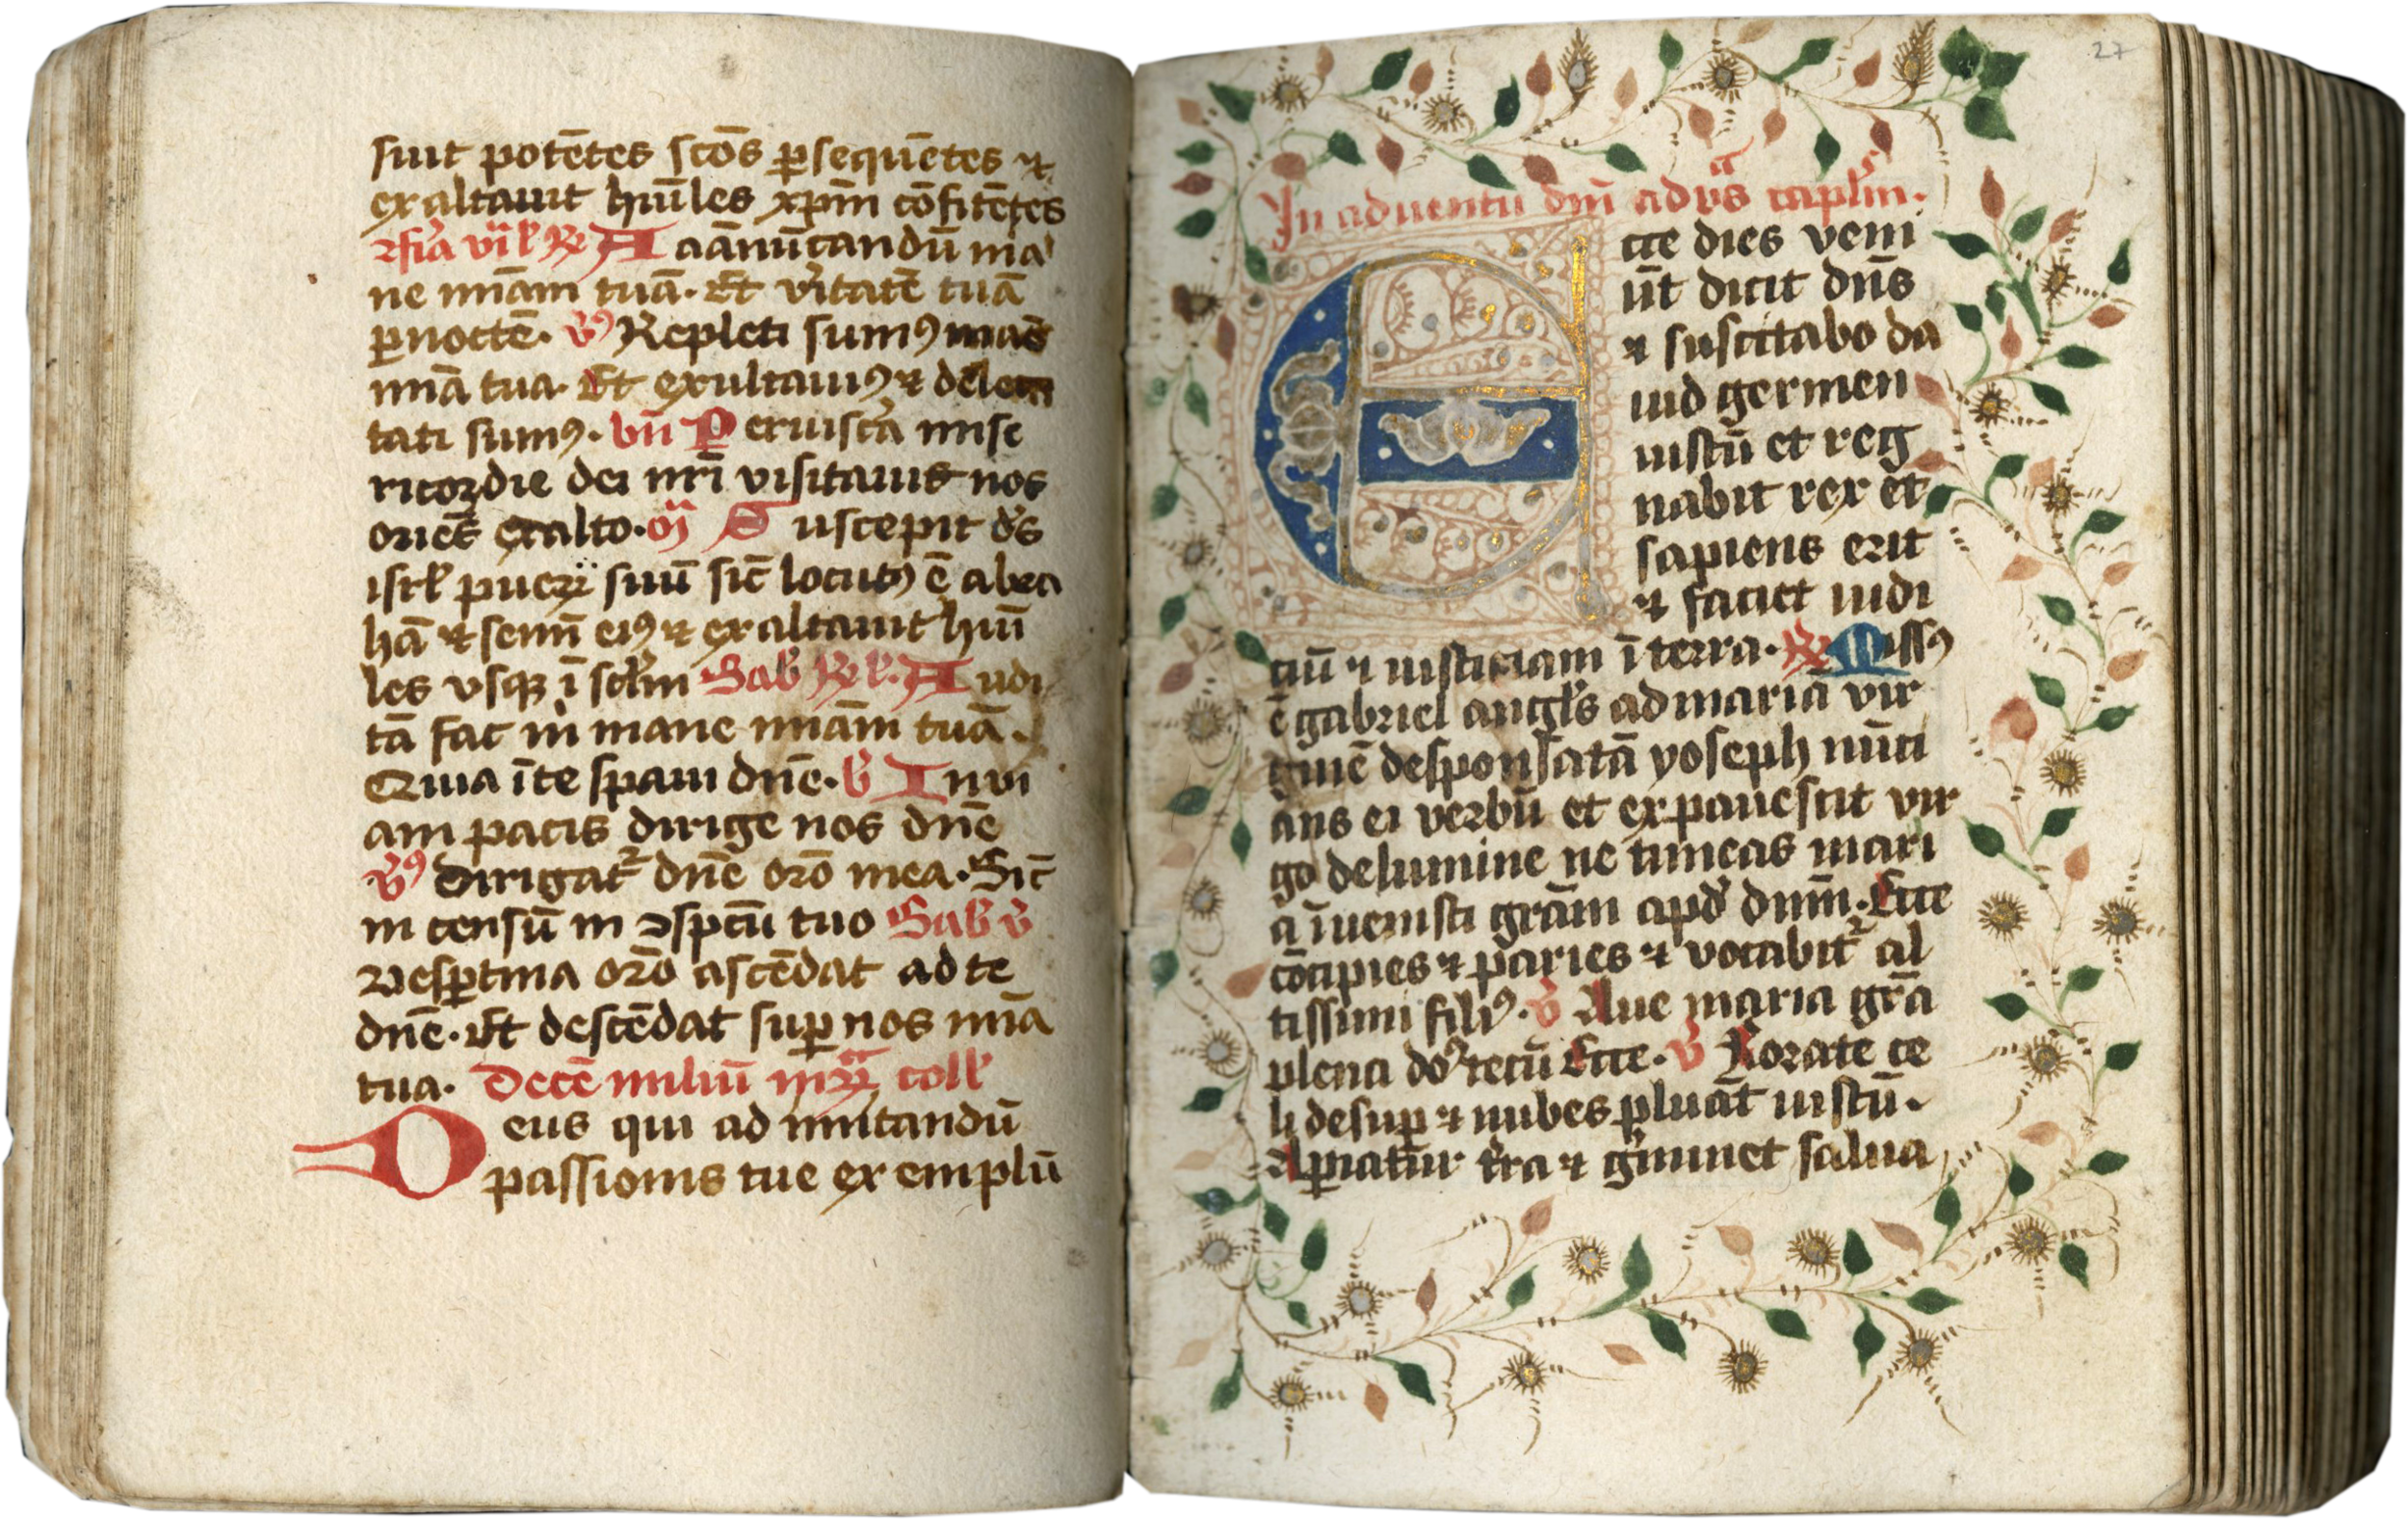 suit potētes scōs ꝑsequētes ⁊
exaltauit hūiles xp̄m cōfitētes
℟ A aānūtandū ma
ne mīam tuā. Et v̓itatē tuā
ꝑ noctē. Repleti sumꝰ
mīa tua. Et exultauimꝰ ⁊ delec
tati sumꝰ. bn̄ P er uiscā mise
ricordie dei nr̄i visitauit nos
oriēs exalto. m̄ S uscepit ds̄
isrl̓ pueꝝ suū sic̄ locutꝰ ē abra
hā ⁊ semī eiꝰ ⁊ exaltauit hūi
les vsqꝫ ī sclm̄ Sab̓ ℟ A udi
tā fac m̓ mane mīam tuā.
Quia īte spaui dn̄e. b̄ I n vi
am pacis dirige nos dn̄e
℣ Dirigat᷑ dn̄e or̄o mea. Sic̄
in censū in ↄspcū tuo Sab̓ v̄
Vesꝑtina or̄o ascēdat ad te
dn̄e. Et descēdat suꝑ nos mīa
tua. Decē miliū mꝝ coll̓
D eus qui ad imitandū
passionis tue exemplū
27
In aduentu dn̄i ad vs̄ capl̓m.
E cce dies veni
ūt dicit dn̄s
⁊ suscitabo da
uid germen
iustū et reg
nabit rex et
sapiens erit
⁊ faciet iudi
ciū ⁊ iusticiam ī terra. ℟ Missꝰ
ē gabriel angl̓s ad mariā vir
ginē desponsatā yoseph nūci
ans ei verbū et expauescit vir
go de lumine ne timeas mari
a īuenisti grām apd̓ dn̄m. Ecce
cōcipies ⁊ paries ⁊ vocabit᷑ al
tissimi filiꝰ. v̄ Aue maria grā
plena do᷑ tecū Ecce. v̄ Rorate ce
li desuꝑ ⁊ nubes pluāt iustū.
Aꝑiatur t̓ra ⁊ g̓minet salua